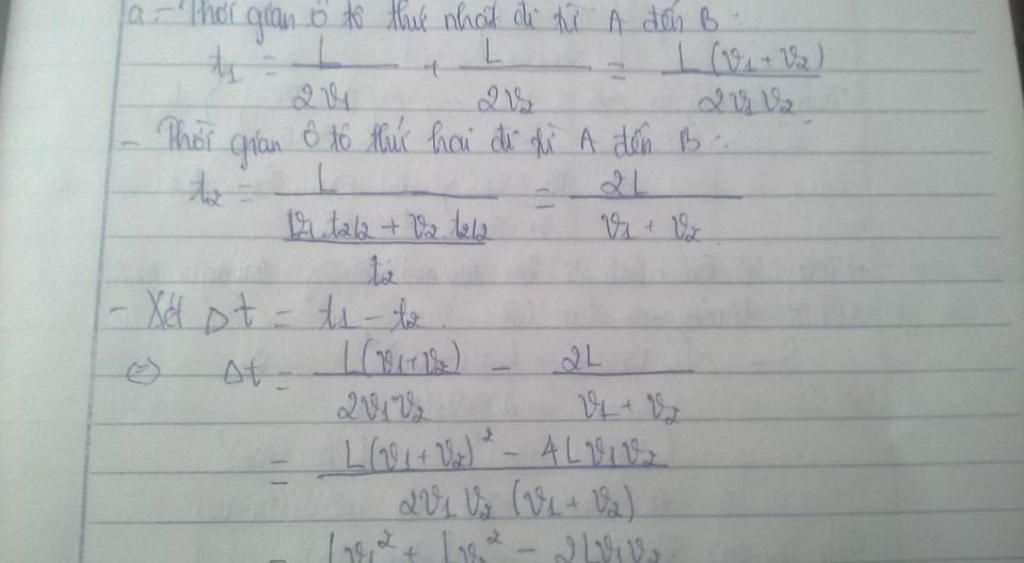 a. - Thời gian ô tô thứ nhất đi từ A đến B :
t₁ = L / 2v₁ + L / 2v₂ = L (v₁ + v₂) / 2v₁v₂
- Thời gian ô tô thứ hai đi từ A đến B :
t₂ = L / ((v₁.t₂/2 + v₂.t₂/2) / t₂) = 2L / (v₁ + v₂)
- Xét Δt = t₁ - t₂
⇔ Δt = L(v₁+v₂) / 2v₁v₂ - 2L / (v₁ + v₂)
= (L(v₁+v₂)² - 4Lv₁v₂) / 2v₁v₂ (v₁ + v₂)
= Lv₁² + Lv₂² - 2Lv₁v₂